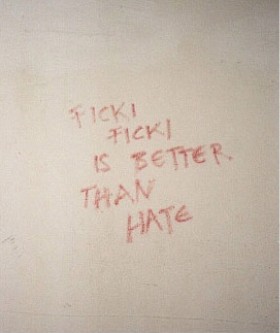 FICKI
FICKI
IS BETTER
THAN
HATE